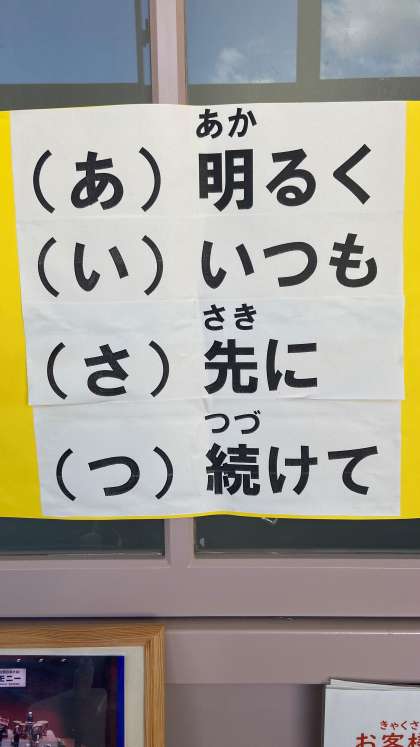 あか
（あ）明るく
（い）いつも
さき
（さ）先に
つづ
（つ）続けて
モニー
きゃくさ
お客様